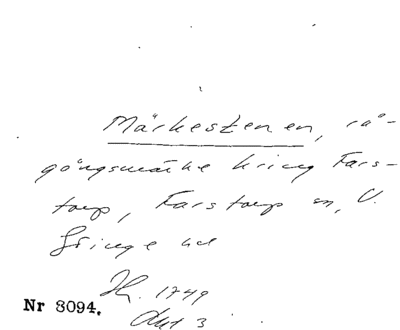 Märkestenen, rå-
gångsmärke kring Fars-
torp, Farstorp sn, V.
Göinge hd
1749
Akt 3
Nr 8094.